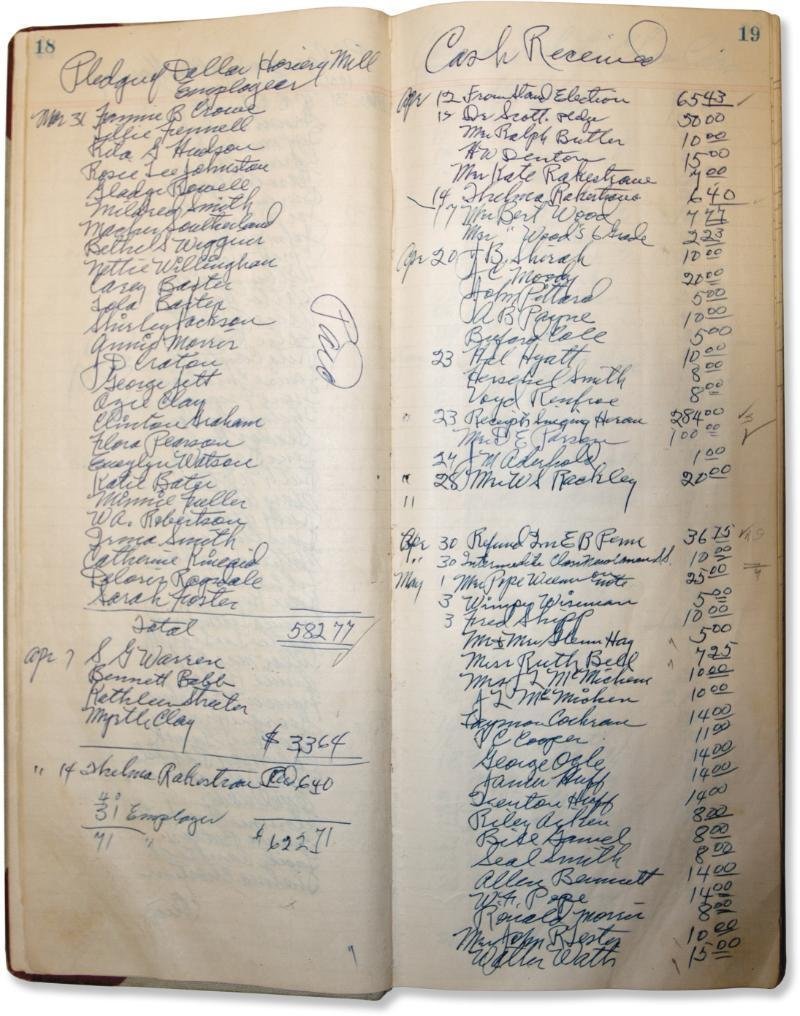 18
Pledges Dollar Hosiery Mill
Employees
Mar 31 Fannie B Crowe
Lillie Fennell
Rita G Hudson
Rosie Lee Johnston
Gladys Rowell
Mildred Smith
Southerland
Bethel S Wiggins
Nettie Willingham
Carey Baxter
Lola Baxter
Shirley Jackson
Annie Morris
J D Craton
George Jett
Ozie Clay
Clinton Graham
Flora Pearson
Evaylyn Watson
Katie Bates
Minnie Fuller
W.A. Robertson
Irma Smith
Catherine Kincaid
Delores Ragsdale
Sarah Foster
Paid
Total 582 77
Apr 7 S G Warren
Bennett Babb
Kathleen Strater
Myrtle Clay
$ 33 64
" 14 Thelma Rakestraw Pd 6 40
40
31 Employees
71 " $ 622 71
19
Cash Received
Apr 12 From Stand Election 65 43
12 Dr Scott pledge 50 00
Mrs Ralph Butler 10 00
H W Denton 15 00
Mrs Kate Rakestraw 7 00
14 Thelma Rakestraw 6 40
17 Mrs Bert Wood 7 77
Mrs " Wood's 6 Grade 2 23
Apr 20 J B. Shirah 10 00
J C Moody 20 00
John Pittard 5 00
A B Payne 10 00
Byron Cole 5 00
23 Hal Hyatt 10 00
Herschel Smith 8 00
Loyd Renfroe 8 00
" 23 Receipts Singing 284 00
Mrs E Parson 1 00 00
24 J M Aderhold 1 00
" 28 Mrs W S Rackley 20 00
11
Apr 30 Refund Frm E B Penn 36 75
" 30 Intermediate Class 10 00
May 1 Mrs Pope Welm on note 25 00
3 Wimpy Wiseman 5 00
3 Fred Shipp 10 00
Mr & Mrs Glenn Hay 5 00
Miss Ruth Bell 7 25
Mrs J L McMichen 10 00
J L McMichen 10 00
Raymon Cochran 14 00
J C Cooper 11 00
George Ogle 14 00
James Huff 14 00
Trenton Huff 14 00
Riley Ayken 8 00
Bill Daniel 8 00
Seal Smith 8 00
Allen Bennett 14 00
W.F. Pope 14 00
Ronald Morris 8 00
Mrs John R Lester 10 00
Walter Watts 15 00